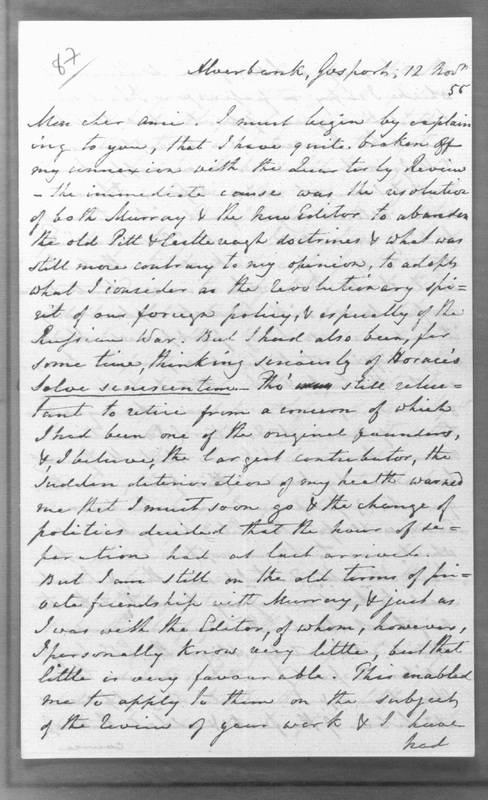 87
Alverbank, Gosport, 12 Nov.r
55
Mon cher ami. I must begin by explain
ing to you, that I have quite broken off
my connexion with the Quarterly Review
– the immediate cause was the resolution
of both Murray & the new Editor to abandon
the old Pitt & Castlereagh doctrines & what was
still more contrary to my opinion, to adopt
what I consider as the revolutionary spi=
rit of our foreign policy, & especially of the
Russian War. But I had also been, for
some time, thinking seriously of Horace's
Solve senescentem – Tho' still reluc=
tant to retire from a concern of which
I had been one of the original founders,
& I believe, the largest contributor, the
sudden deterioration of my health warned
me that I must soon go & the change of
politics decided that the hour of se=
paration had at last arrived.
But I am still on the old terms of pri=
vate friendship with Murray, & just as
I was with the Editor, of whom, however,
I personally know very little, but that
little is very favourable. This enabled
me to apply to them on the subject
of the review of your work & I have
had